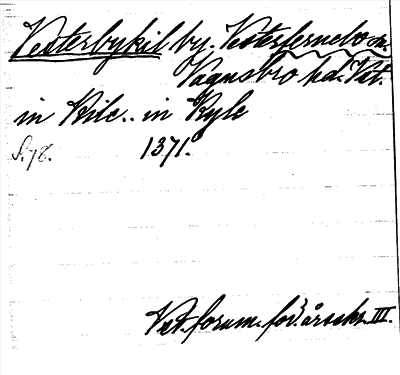 Vesterbykil by. Vesterfernebo sn.
Vagnsbro hd. Vst.
in Kilc.. in Kyle
S. 78. 1371.
Vst. forum. för. årsskr. III.